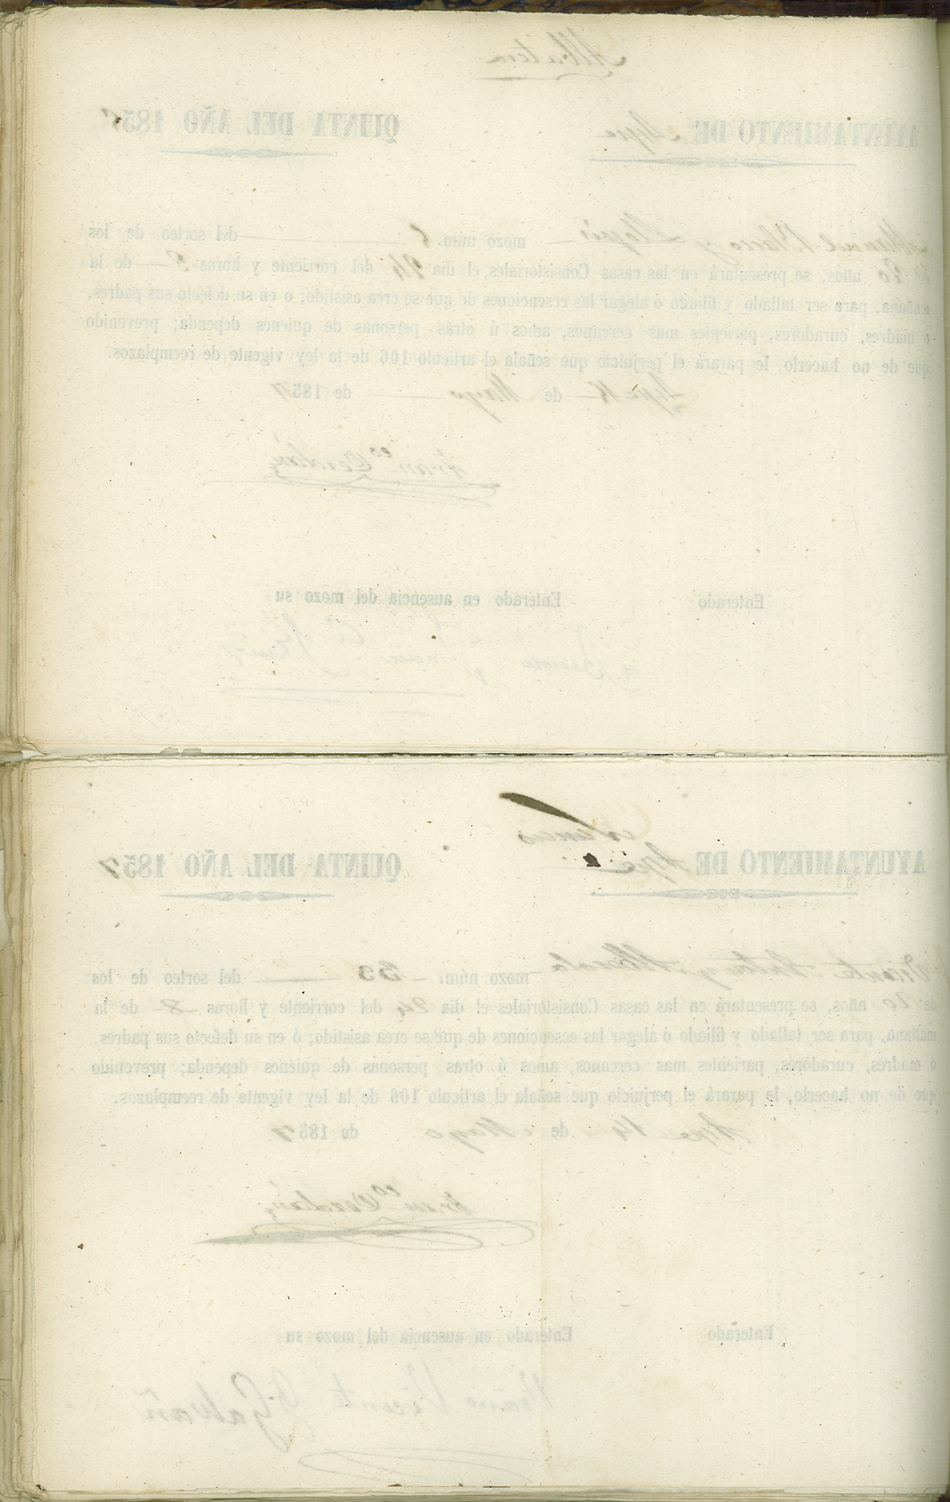 Albatera
AYUNTAMIENTO DE Aspe QUINTA DEL AÑO 1857
Manuel y mozo núm. 8 del sorteo de los
de 20 años, se presentará en las casas Consistoriales, el dia 24 del corriente y horas 8 de la
mañana, para ser tallado y filiado ó alegar las ecsenciones de que se crea asistido; ó en su defecto sus padres,
o madres, curadores, parientes mas cercanos, amos ú otras personas de quienes dependa; prevenido
que de no hacerlo, le parará el perjuicio que señala el articulo 106 de la ley vigente de reemplazos.
Aspe de Mayo de 1857
Fran.co Cerdán
Enterado Enterado en ausencia del mozo su
AYUNTAMIENTO DE Aspe QUINTA DEL AÑO 1857
Vicente y mozo núm. 53 del sorteo de los
de 20 años, se presentará en las casas Consistoriales el dia 24 del corriente y horas 8 de la
mañana, para ser tallado y filiado ó alegar las ecsenciones de que se crea asistido; ó en su defecto sus padres,
o madres, curadores, parientes mas cercanos, amos ú otras personas de quienes dependa; prevenido
que de no hacerlo, la parará el perjuicio que señala el articulo 106 de la ley vigente de reemplazos.
Aspe 14 de Mayo de 1857
Fran.co Cerdán
Enterado Enterado en ausencia del mozo su
Vicente Galvañ